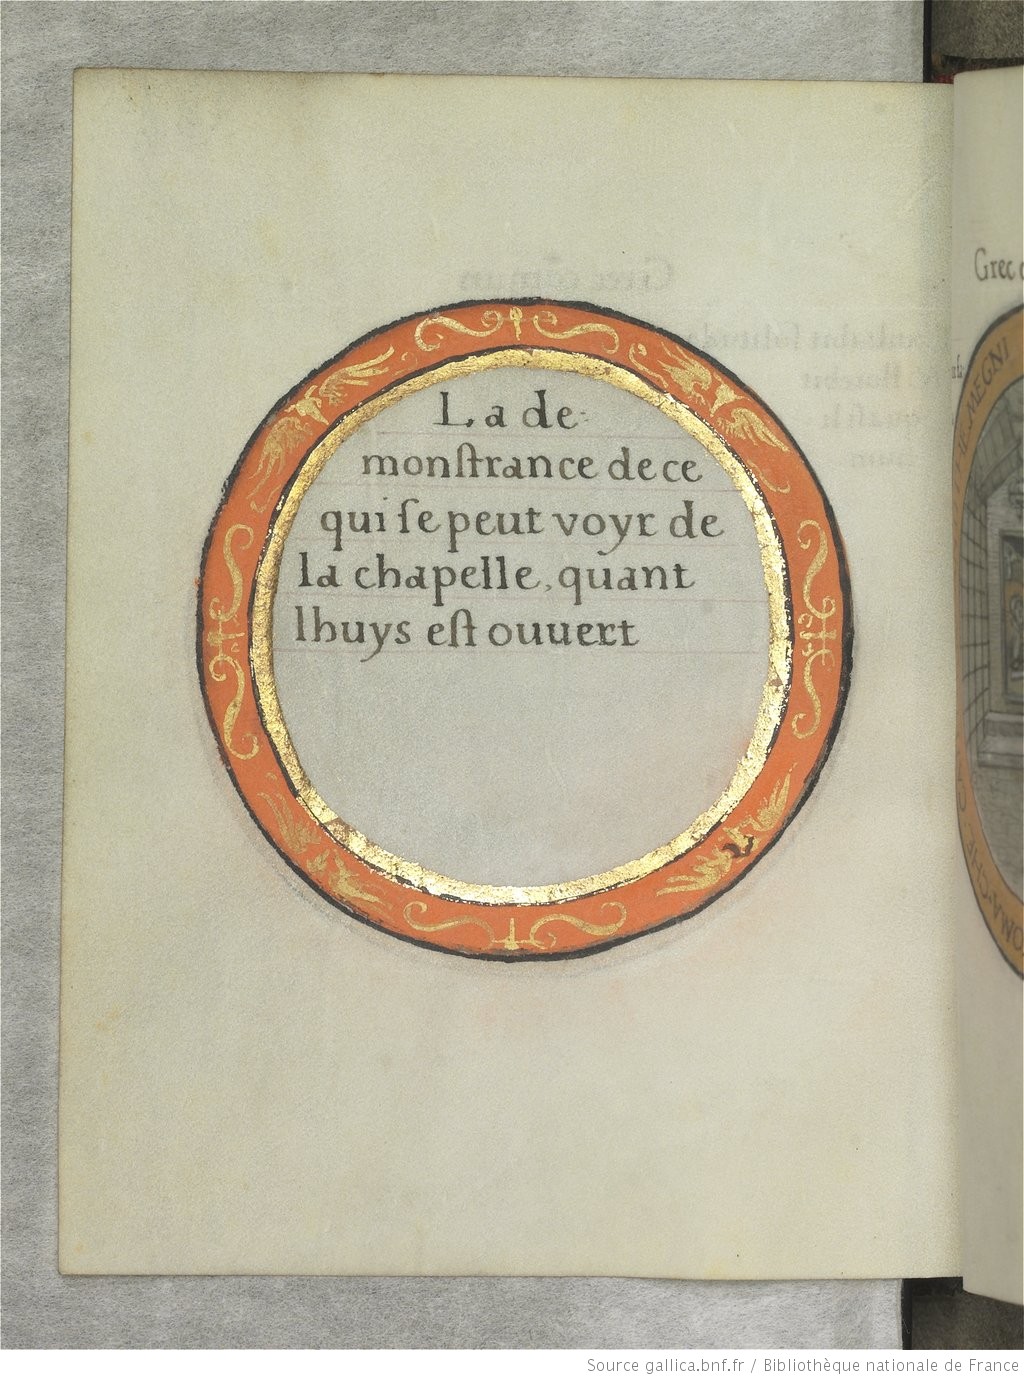 La de-
monſtrance de ce
qui ſe peut voyr de
la chapelle, quant
lhuys eſt ouuert
Grec
MEGNI
OMA·CHE
Source gallica.bnf.fr / Bibliothèque nationale de France